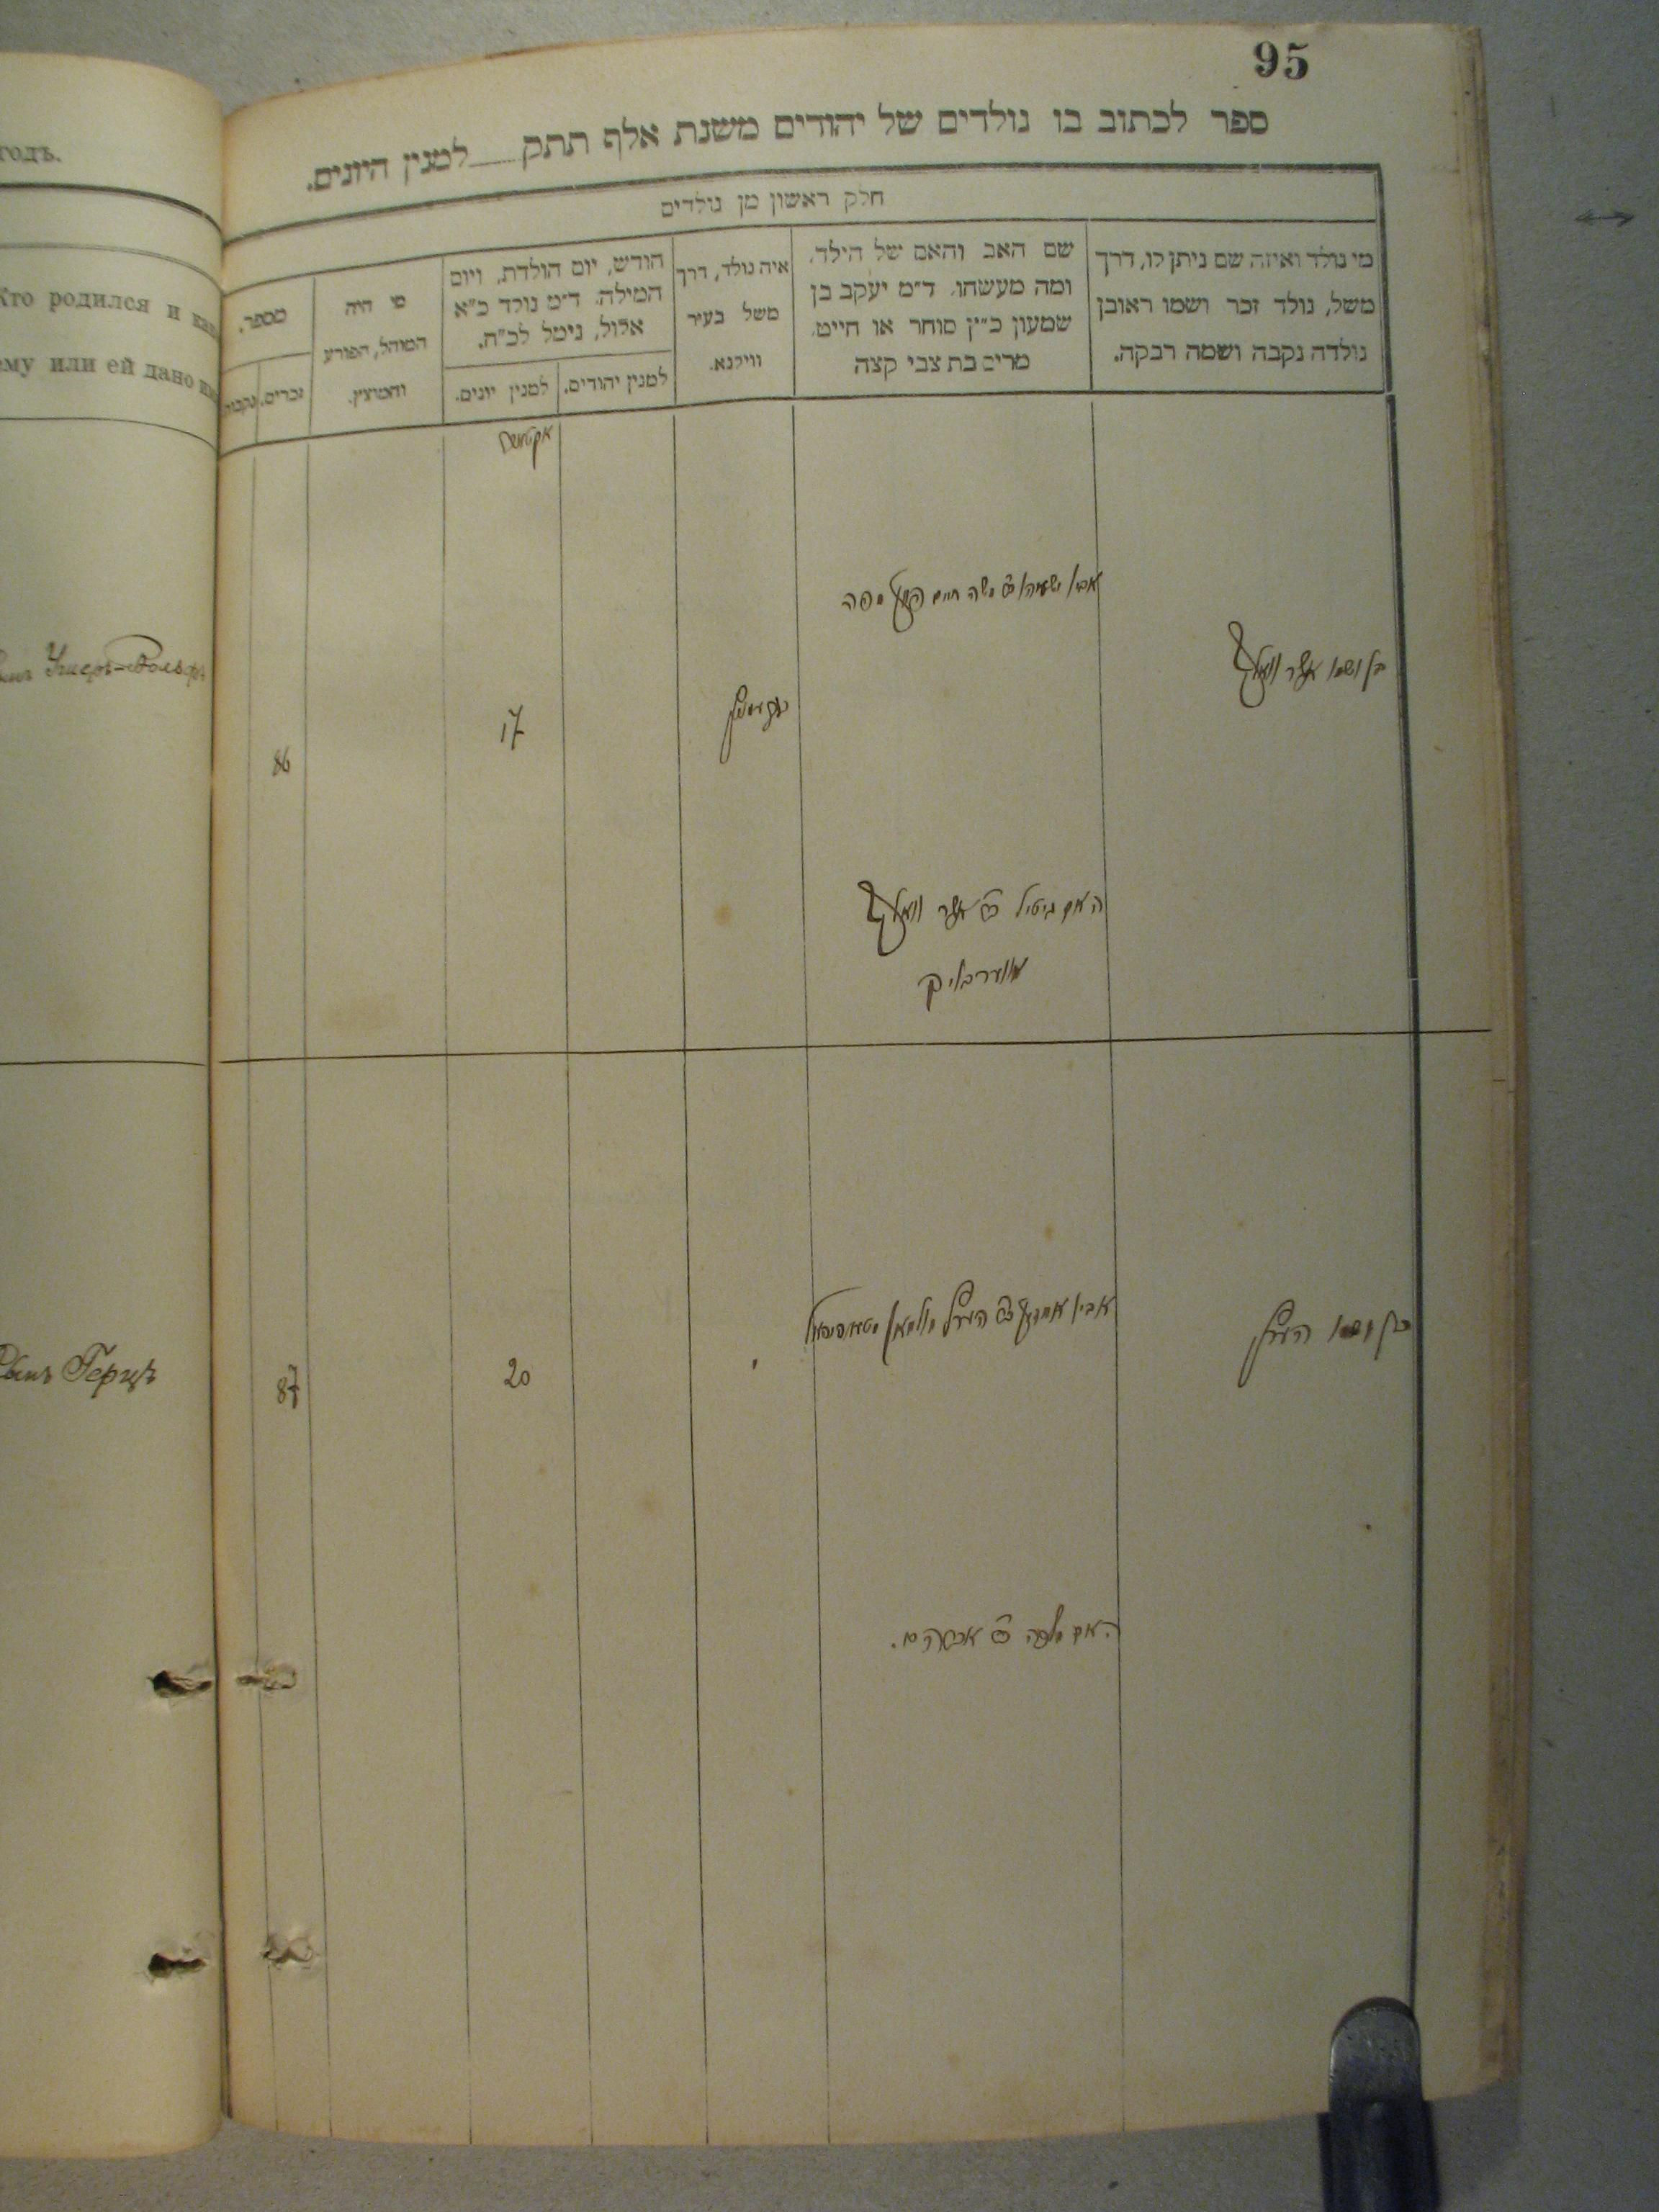 95
ספר לכתוב בו נולדים של יהודים משנת אלף תתק למנין היונים.
חלק ראשון מן נולדים
מי נולד ואיזה שם ניתן לו, דרך
משל, נולד זכר ושמו ראובן
נולדה נקבה ושמה רבקה.
שם האב והאם של הילד,
ומה מעשהו. ד״מ יעקב בן
שמעון כ״ץ סוחר או חייט,
מרים בת צבי קצה
איה נולד, דרך
משל בעיר
ווילנא.
חודש, יום הולדת, ויום
המילה. ד״מ נולד כ״א
אלול, נימל לכ״ח.
למנין יהודים.
למנין יונים.
מי היה
המוהל, הפורע
והמוצץ.
מספר.
זכרים.
נקבות
אקטאבר
בן ושמו אשר וואלף
אביו ישעיהו ב״ר משה חיים
17
86
האם גיטיל ב״ר אשר וואלף
בן ושמו הערץ
אביו ב״ר הערץ
20
87
האם ב״ר
годъ.
Кто родился и как
ему или ей дано им
Ушеръ-Вольфъ
Сынъ Герцъ